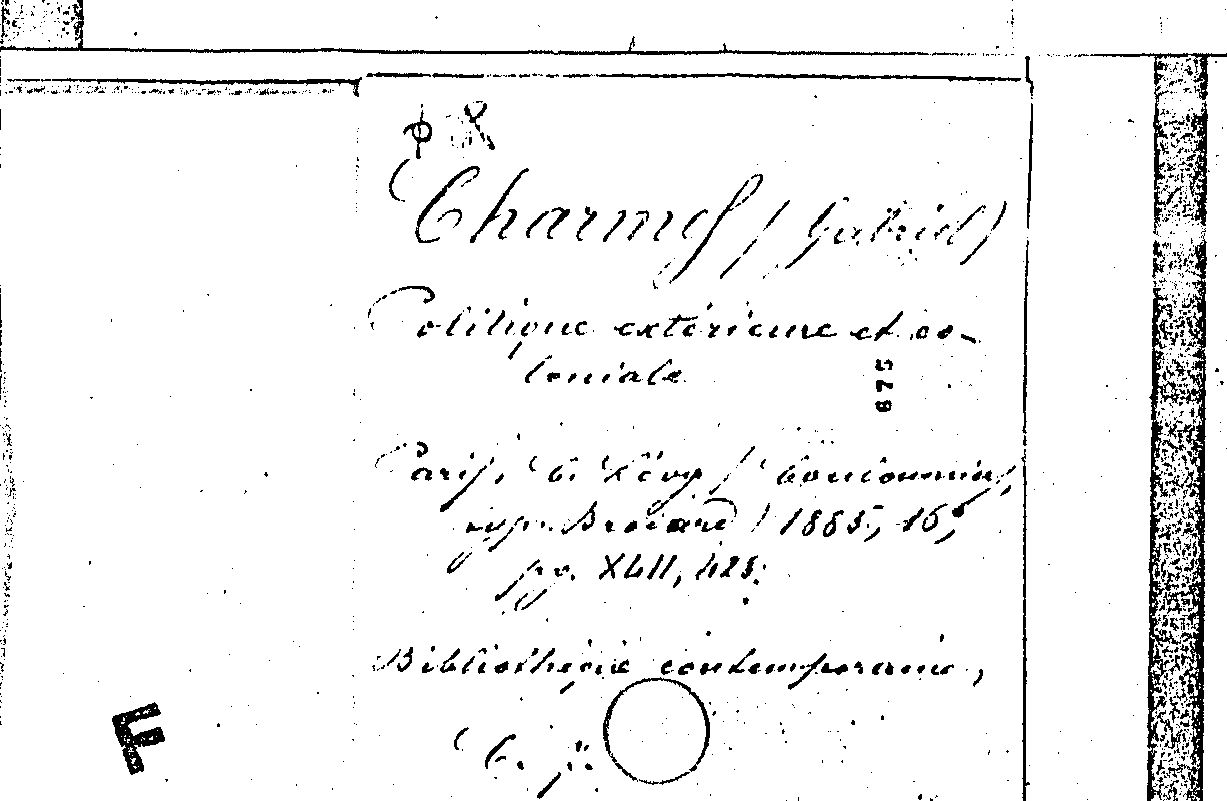 Charmes (Gabriel)
Politique extérieure et co-
loniale
675
Paris, C. Lévy (Coulommiers,
typ. Brodard) 1885, 16°,
pp. XLII, 428.
Bibliothèque contemporaine,
F